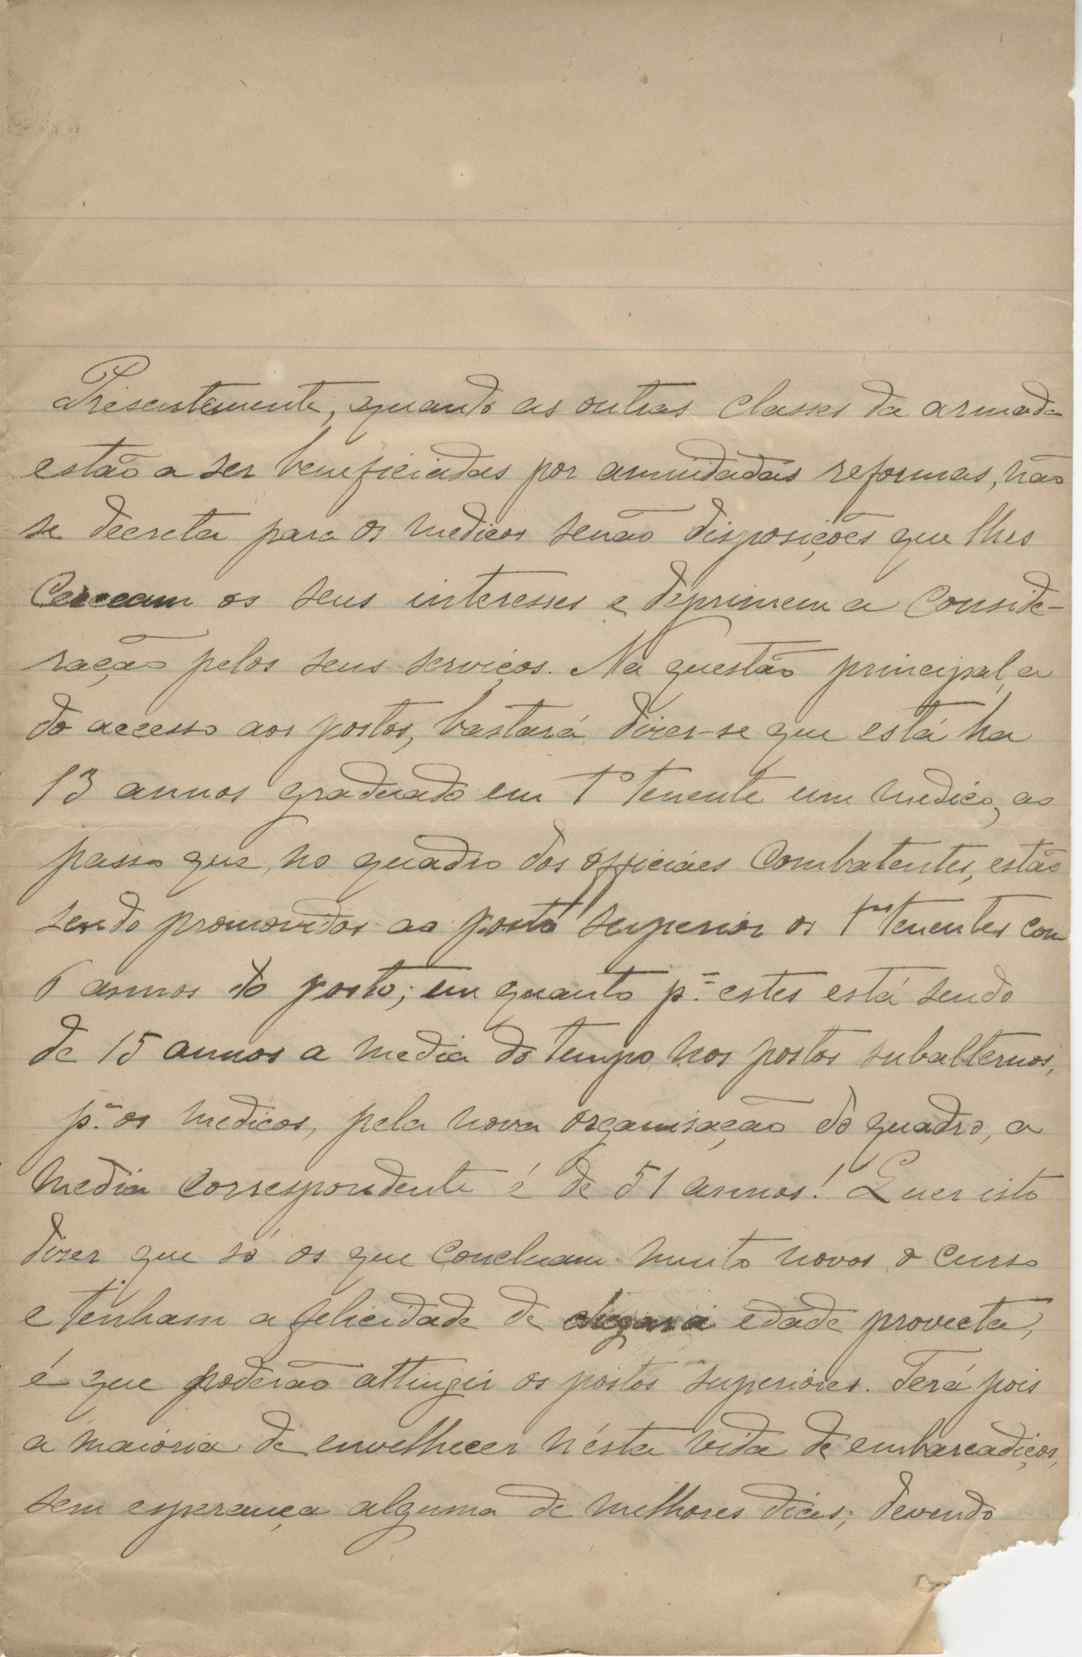 Presentemente, quando as outras classes da armada
estão a ser beneficiadas por amiudadas reformas, não
se decreta para os medicos senão disposições que lhes
cerceam os seus interesses e deprimem a conside-
ração pelos seus serviços. Na questão principal, a
do accesso aos postos, bastará dizer-se que está ha
13 annos graduado em 1º tenente um medico, ao
passo que, no quadro dos officiáes combatentes, estão
sendo promovidos ao posto superior os 1ᵒˢ tenentes com
6 annos do posto; em quanto pª estes está sendo
de 15 annos a media do tempo nos postos subalternos,
pª os medicos, pela nova organisação do quadro, a
media correspondente é de 51 annos! Quer isto
dizer que só os que concluam muito novos o curso
e tenham a felicidade de chegar á edade provecta,
é que poderão attingir os postos superiores. Terá pois
a maioria de envelhecer n'ésta vida de embarcadiços,
sem esperança alguma de melhores dias; devendo